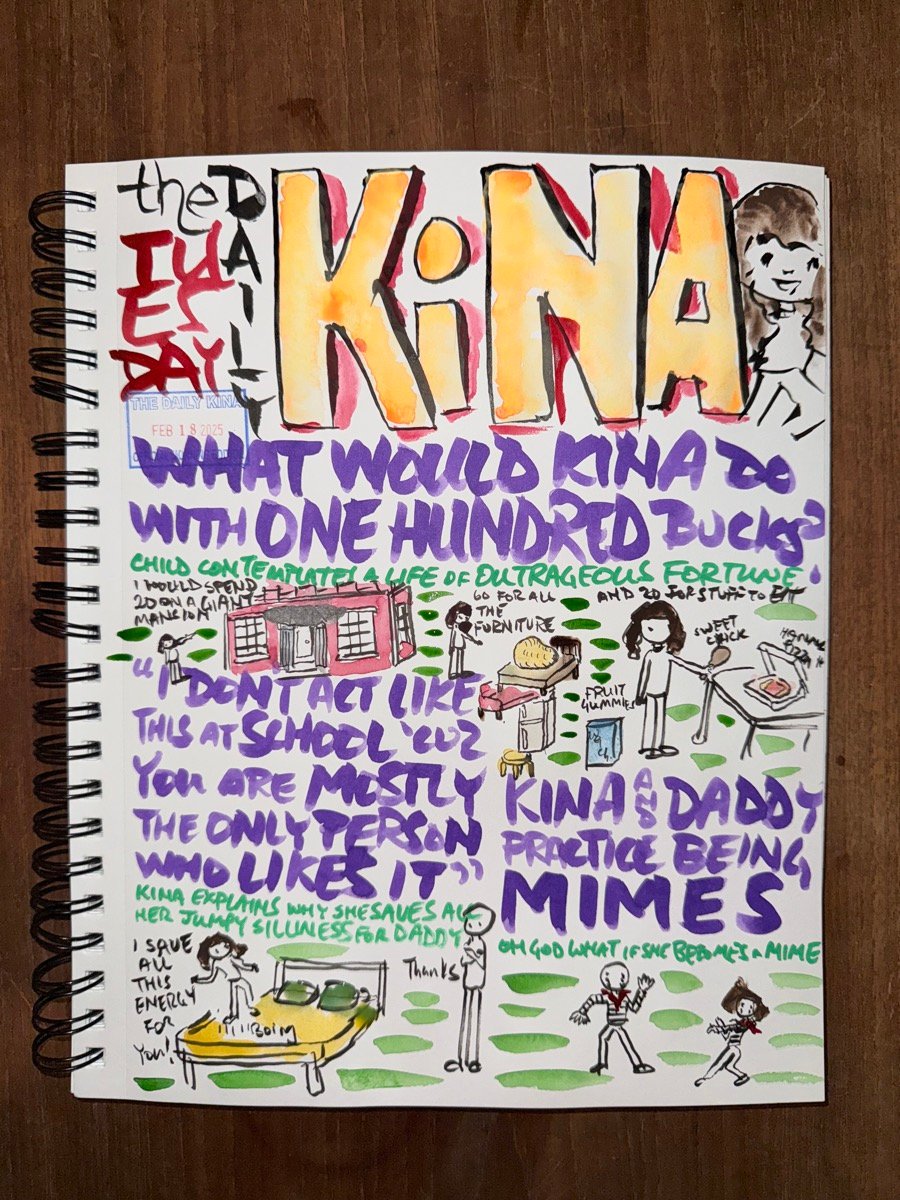 the DAILY
TUESDAY
KiNA
THE DAILY KINA
FEB 18 2025
WHAT WOULD KINA DO
WITH ONE HUNDRED BUCKS?
CHILD CONTEMPLATES A LIFE OF OUTRAGEOUS FORTUNE
I WOULD SPEND
20 ON A GIANT
MANSION
60 FOR ALL
THE
FORNITURE
AND 20 FOR STUFF TO EAT
SWEET
CHICK
FRUIT
GUMMIES
PIZZA
"I DON'T ACT LIKE
THIS AT SCHOOL 'CUZ
YOU ARE MOSTLY
THE ONLY PERSON
WHO LIKES IT"
KINA EXPLAINS WHY SHE SAVES ALL
HER JUMPY SILLINESS FOR DADDY
I SAVE
ALL
THIS
ENERGY
FOR
YOU!
BOING
Thanks
KINA AND DADDY
PRACTICE BEING
MIMES
OH GOD WHAT IF SHE BECOMES A MIME